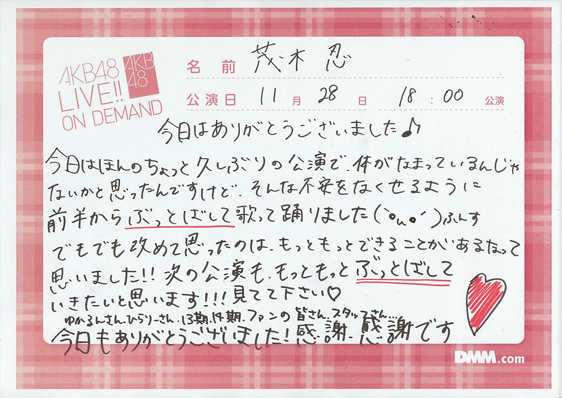 AKB48
LIVE!!
ON DEMAND
AKB
48
名前 茂木 忍
公演日 11月28日 18:00公演
今日はありがとうございました♪
今日はほんのちょっと久しぶりの公演で、体がなまっているんじゃ
ないかと思ったんですけど、そんな不安をなくせるように
前半からぶっとばして歌って踊りました(`・ω・´)ふんす
でもでも改めて思ったのは、もっともっとできることがあるなって
思いました!! 次の公演も、もっともっとぶっとばして
いきたいと思います!!! 見てて下さい♡
ゆかるんさん、ひらりーさん、13期、14期、ファンの皆さん、スタッフさん...
今日もありがとうございました!感謝、感謝です
DMM.com